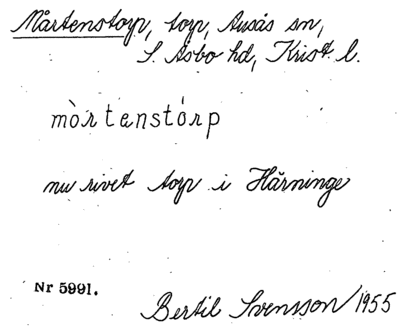 Mårtenstorp, torp, Ausås sn,
S. Åsbo hd, Krist. l.
mòrtenstórp
nu rivet torp i Härninge
Nr 5991.
Bertil Svensson 1955